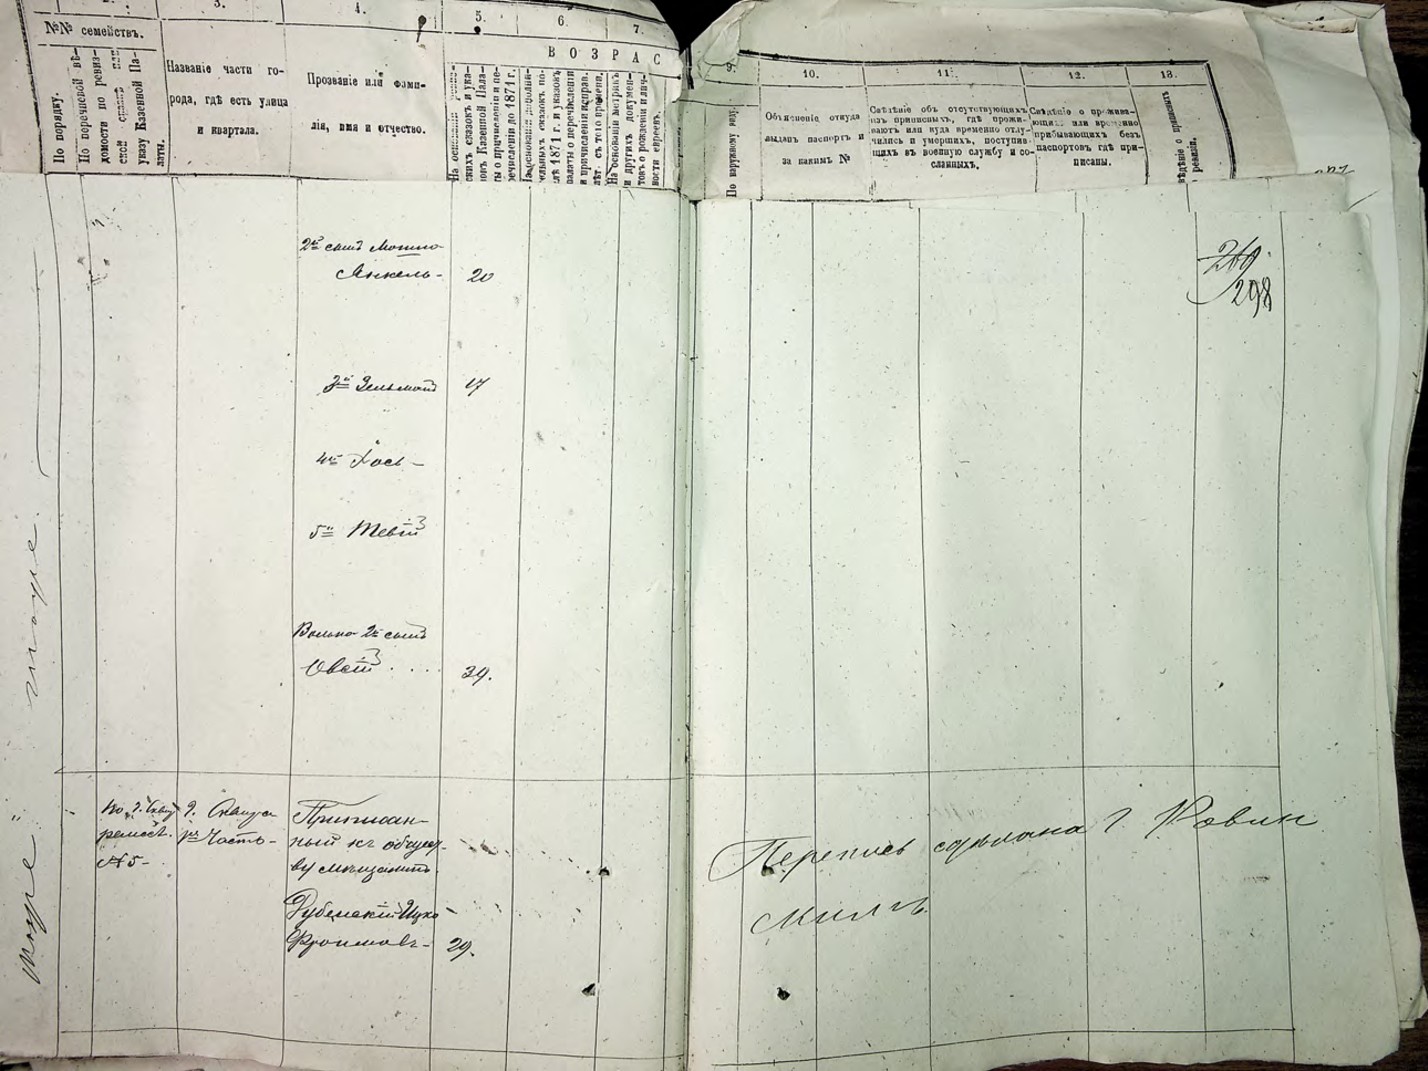 3.
4.
5.
6.
7.
№№ семействъ.
По порядку.
По перечневой вѣ-
домости по ревиз-
указу Казенной Па-
латы.
Названіе части го-
рода, гдѣ есть улица
и квартала.
Прозваніе или фами-
лія, имя и отчество.
ВОЗРАС
На основаніи
скихъ сказокъ и ука-
зовъ Казенной Пала-
ты о причисленіи и пе-
речисленіи до 1871 г.
лѣ 1871 г. и указовъ
палаты о перечисленіи
и причисленіи исправ.
лѣт. съ того времени.
На основаніи метрикъ
и другихъ докумен-
товъ о рожденіи и лич-
ности евреевъ.
9.
10.
11.
12.
13.
По наружному виду.
Объясненіе откуда
выданъ паспортъ и
за какимъ №
Свѣдѣніе объ отсутствующихъ
изъ приписныхъ, гдѣ прожи-
ваютъ или куда временно отлу-
чились и умершихъ, поступив-
щихъ въ военную службу и со-
сланныхъ.
Свѣдѣніе о прожива-
ющихъ или временно
прибывающихъ безъ
паспортовъ гдѣ при-
писаны.
2й сынъ Мошко-
Янкель- 20
269
298
3й Зельманъ 17
4й Хось-
5й Тевій
Волько 2й сынъ
Овсій .... 39.
тоже
тоже
№ 5-
г. Сквира
Часть-
Приписан-
ный къ общест-
ву мѣщанинъ
Дубенскій Ицко-
Фроимовъ- 29.
Перепись сдѣлана г. Ровин
скимъ